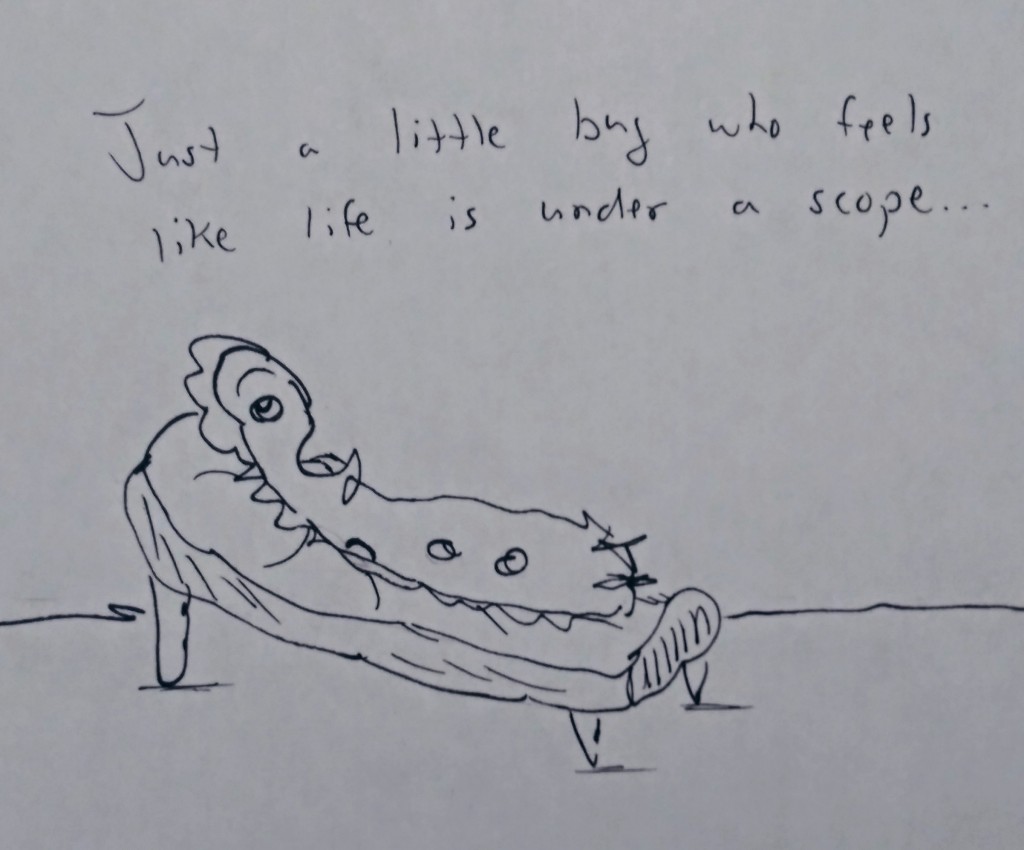 Just a little bug who feels
like life is under a scope...